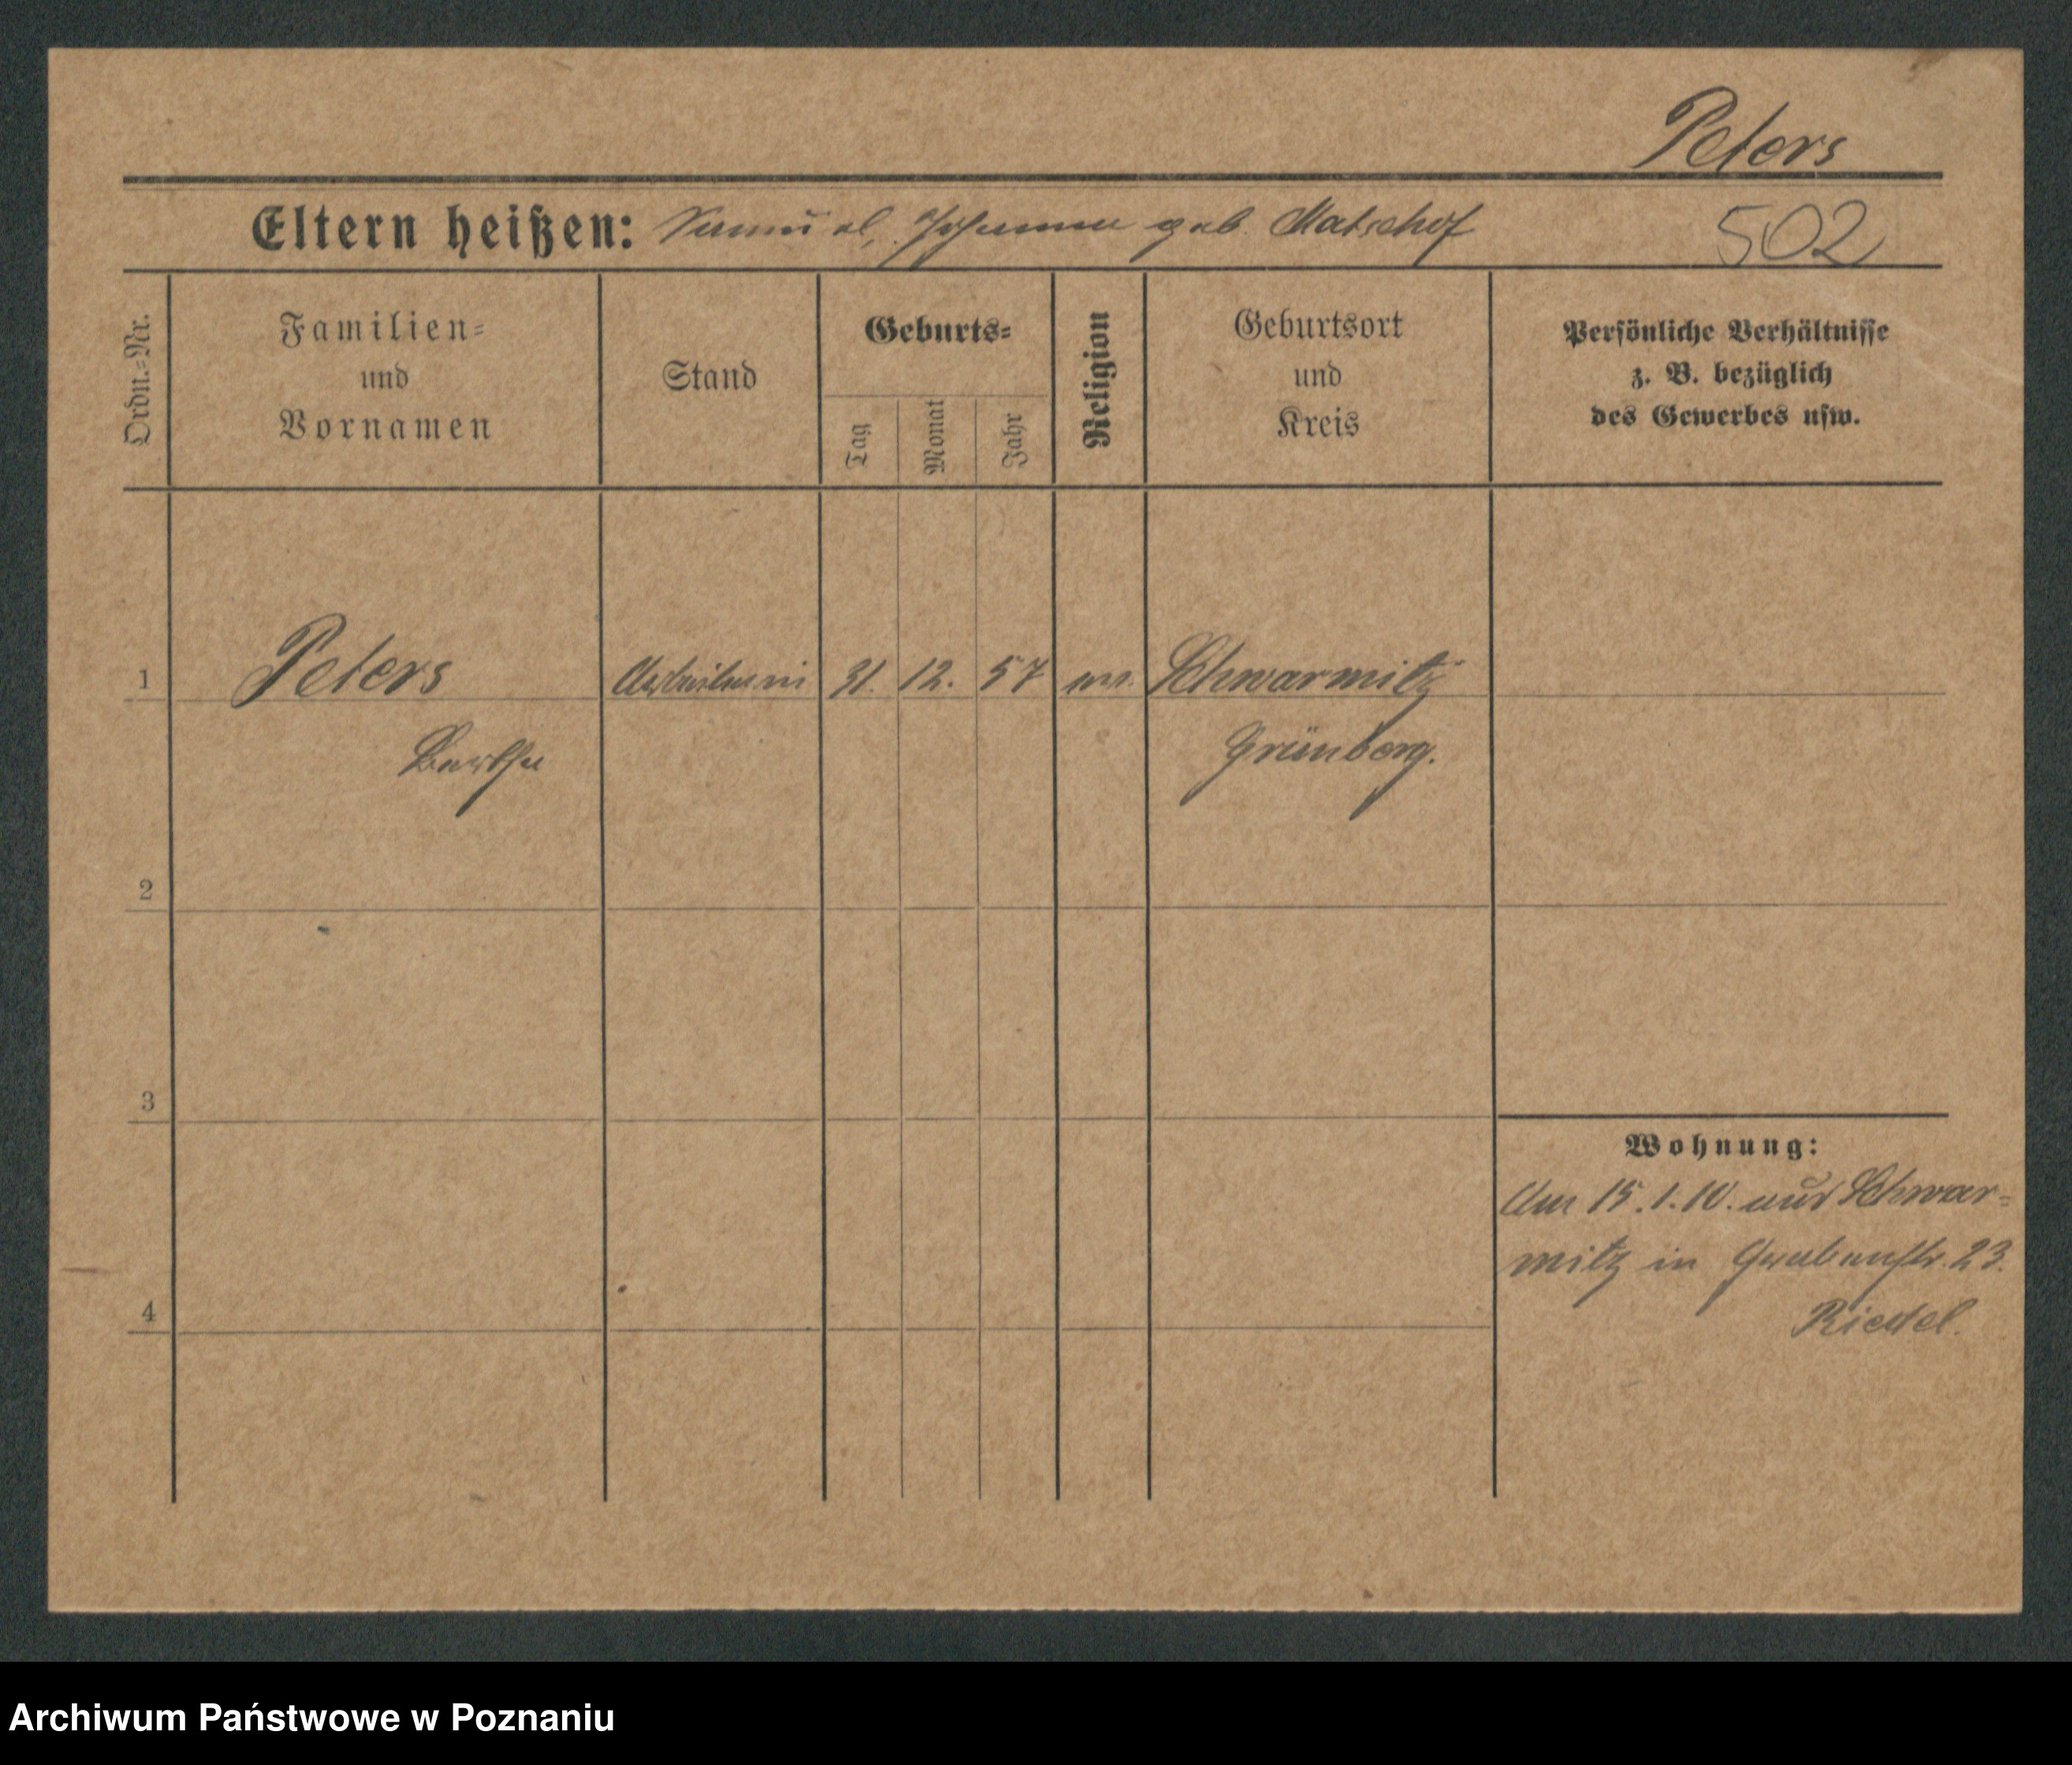 Peters
Eltern heißen: Samuel, Johanna geb. Matschof
502
Ordn.=Nr.
Familien=
und
Vornamen
Stand
Geburts=
Tag
Monat
Jahr
Religion
Geburtsort
und
Kreis
Persönliche Verhältnisse
z. B. bezüglich
des Gewerbes usw.
1 Peters Arbeiterin 31. 12. 57 Schwarmitz
Bertha Grünberg.
2
3
Wohnung:
Am 15.1.10. aus Schwar=
mitz in Grabenstr. 23.
4
Riedel.
Archiwum Państwowe w Poznaniu